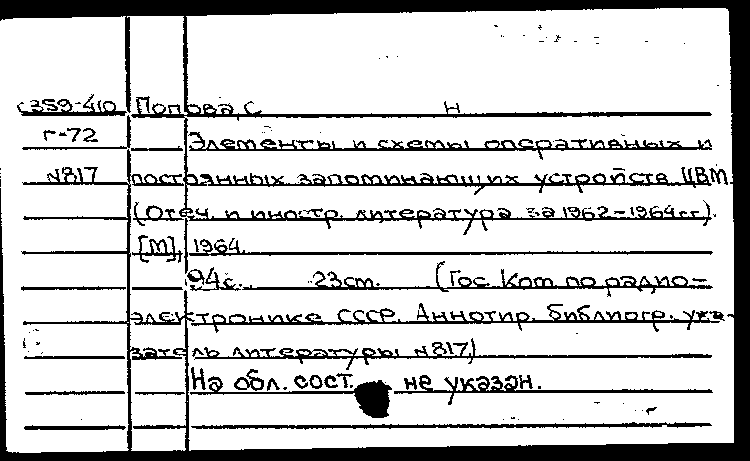 с359-410 Попова, С Н
г-72 Элементы и схемы оперативных и
N817 постоянных запоминающих устройств ЦВМ.
(Отеч. и иностр. литература за 1962-1964гг).
[М], 1964.
94с. 23см. (Гос. Ком. по радио-
электронике СССР. Аннотир. библиогр. ука-
затель литературы N817)
На обл. сост. не указан.